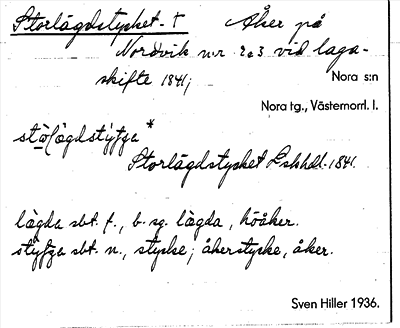 Storlägdstycket. † Åker på
Nordvik nr 2 o 3 vid laga-
skifte 1841;
Nora s:n
Nora tg., Västernorrl. l.
Storlägdstycket Lskhdl. 1841.
lägda sbt. f., b. sg. lägda, höåker.
sbt. n., stycke; åkerstycke, åker.
Sven Hiller 1936.